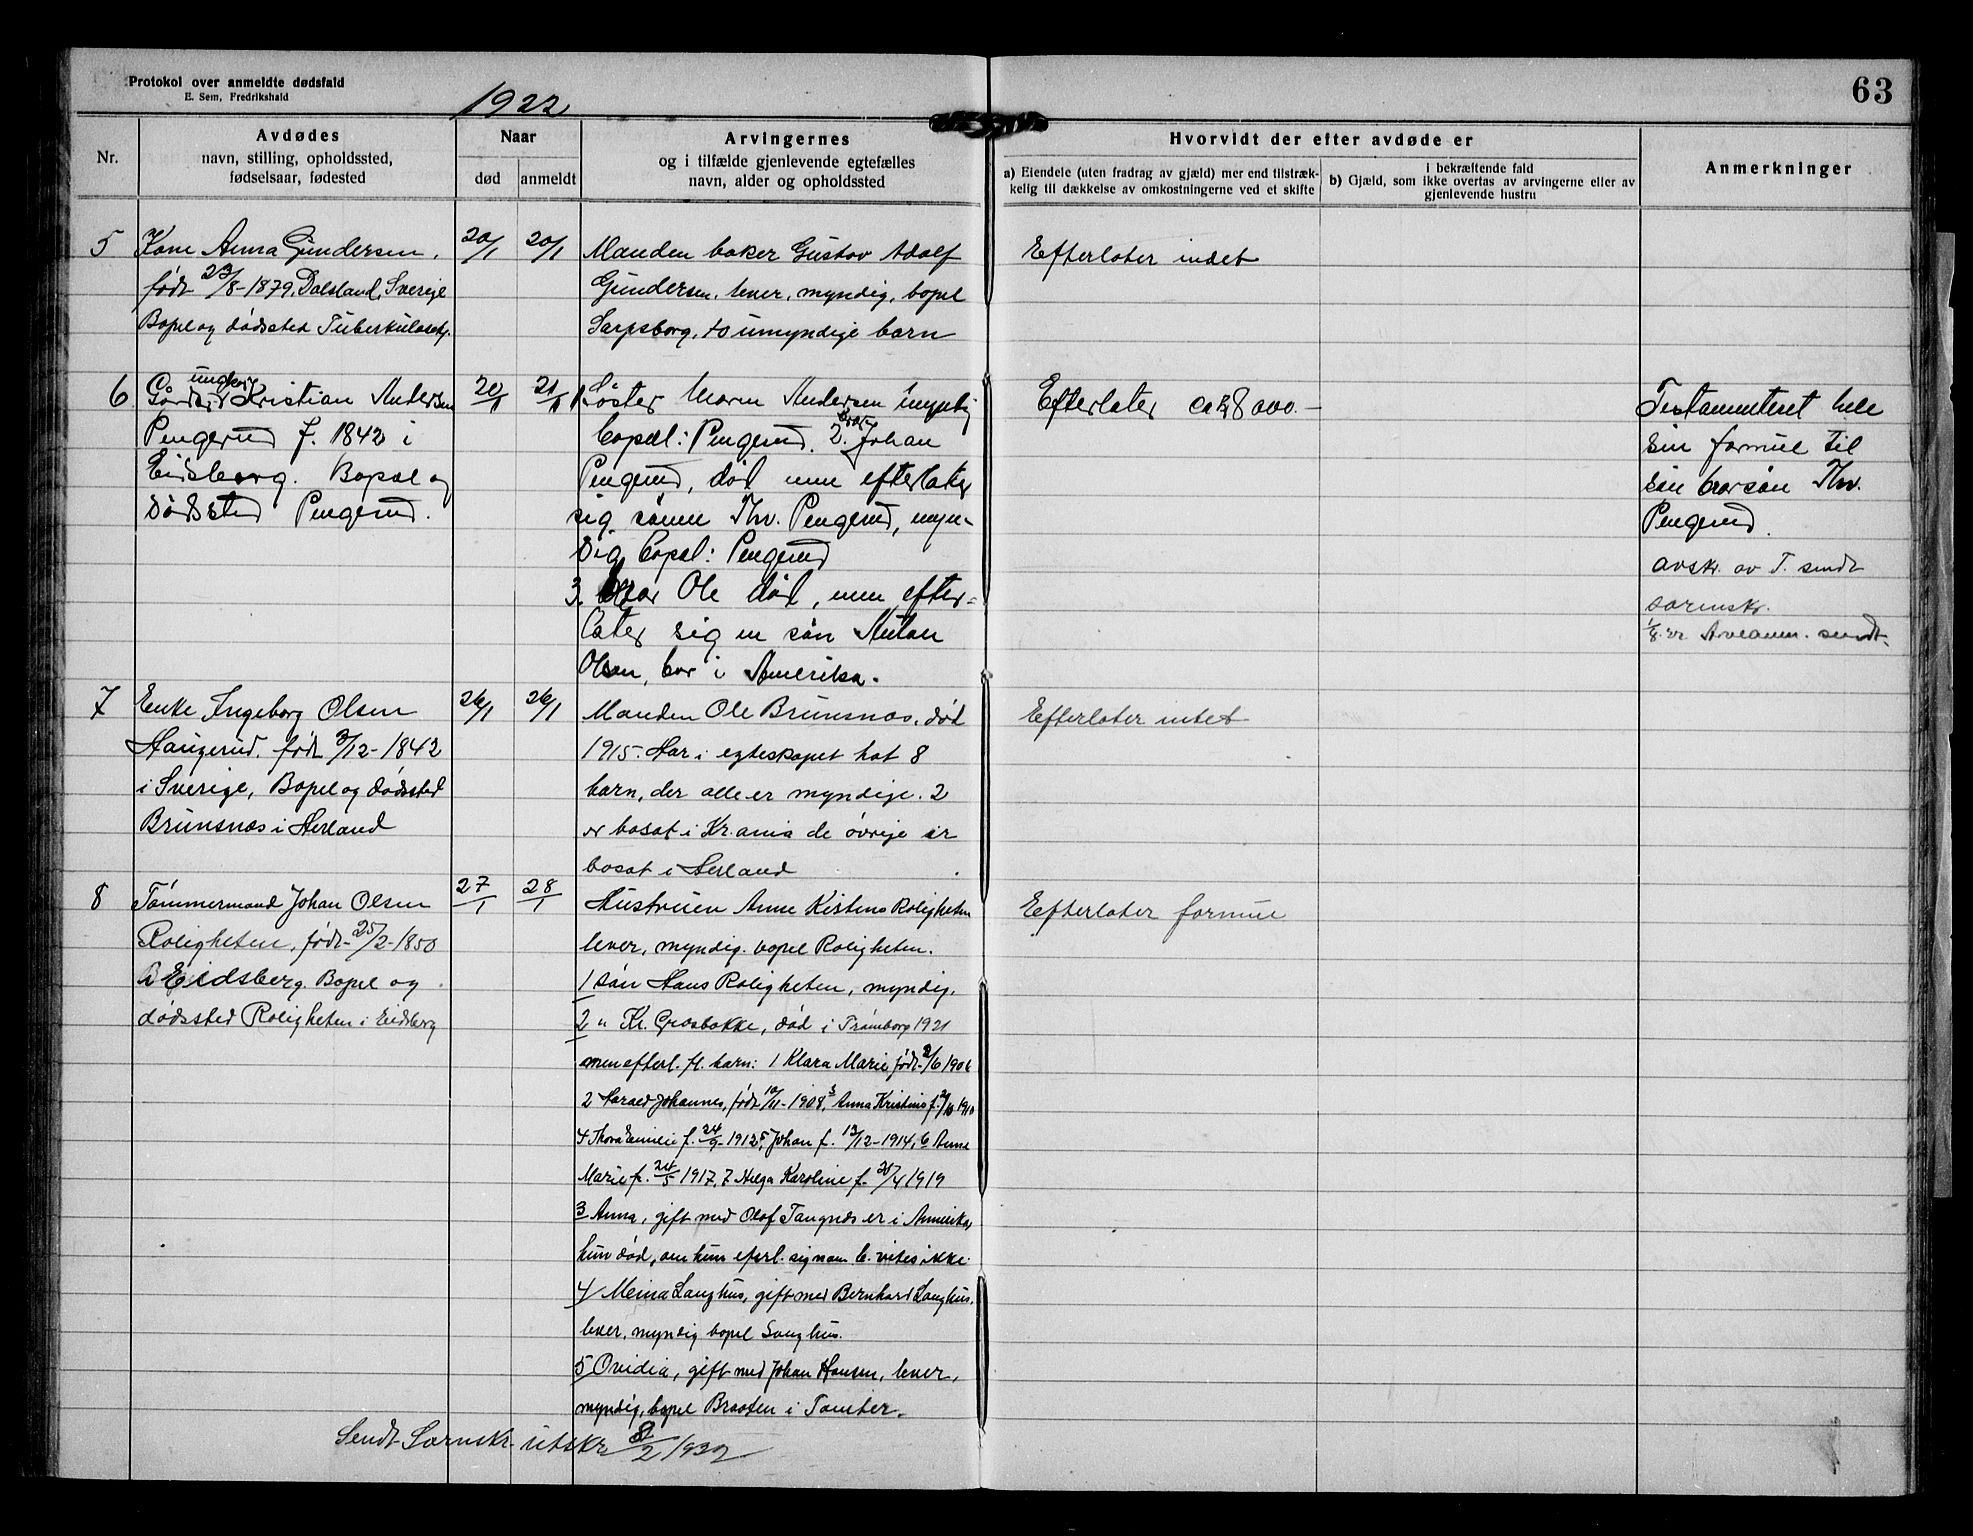 Protokol over anmeldte dødsfald
E. Sem, Fredrikshald
1922
63
Nr.
Avdødes
navn, stilling, opholdssted,
fødselsaar, fødested
Naar
død
anmeldt
Arvingernes
og i tilfælde gjenlevende egtefælles
navn, alder og opholdssted
Hvorvidt der efter avdøde er
a) Eiendele (uten fradrag av gjæld) mer end tilstræk-
kelig til dækkelse av omkostningerne ved et skifte
i bekræftende fald
b) Gjæld, som ikke overtas av arvingerne eller av
gjenlevende hustru
Anmerkninger
5
Kone Anna Gundersen.
født 23/8-1879, Dalsland, Sverige
Bopel og dødssted Tuberkulosehj.
20/1
20/1
Manden baker Gustav Adolf
Gundersen, lever, myndig, bopel
Sarpsborg, umyndige barn
Efterlater indet
6
ungkar
Gårdbr. Kristian Andersen
Pengerud f. 1842 i
Eidsberg. Bopæl og
dødssted Pengerud.
20/1
21/1
Søster Maren Andersen myndig
bopæl: Pengerud. 2. bror Johan
Pengerud, død men efterlater
sig sønn Thv. Pengerud, myn-
dig bopæl: Pengerud
3. bror Ole død, men efter-
later sig en søn Anton
Olsen, bor i Amerika.
Efterlater ca kr 8000.-
Testamenteret hele
sin formue til
sin brorsøn Thv.
Pengerud.
avskr. av T. sendt
sorenskr.
1/8-22 Arveanm. sendt
7
Enke Ingeborg Olsen
Haugerud, født 3/12-1842
i Sverige, Bopel og dødssted
Brunsnæs i Herland
26/1
26/1
Manden Ole Brunsnæs, død
1915. Har i egteskapet hat 8
barn, der alle er myndige. 2
er bosat i Kr.ania de øvrige er
bosat i Herland
Efterlater intet
8
Tømmermand Johan Olsen
Roligheten, født 25/2-1850
Eidsberg. Bopel og
dødssted Roligheten i Eidsberg
27/1
28/1
Hustruen Anne Kistine Roligheten
lever, myndig. bopel Roligheten.
1 søn Hans Roligheten, myndig.
2 " Kr. Grasbakke, død i Trømborg 1921
men efterl. fl. barn: 1 Klara Marie født 2/6 1906
2 Harald Johannes, født 10/11-1908, 3 Anna Kristine f. 1910
4 Thora Emilie f. 24/9-1912, 5 Johan f. 13/12-1914, 6 Anne
Marie f. 24/5 1917, 7 Helga Karoline f. 30/4 1919
3 Anna, gift med Olof Tangnes er i Amerika,
hun død, om hun efterl. sig noen b. vites ikke.
4/ Meina Langhus, gift med Bernhard Langhus,
lever, myndig bopel Langhus.
5 Ovidia, gift med Johan Hansen, lever,
myndig, bopel Braaten i Tomter.
Efterlater formue
Sendt Sorenskr. utskr. 8/2 1922